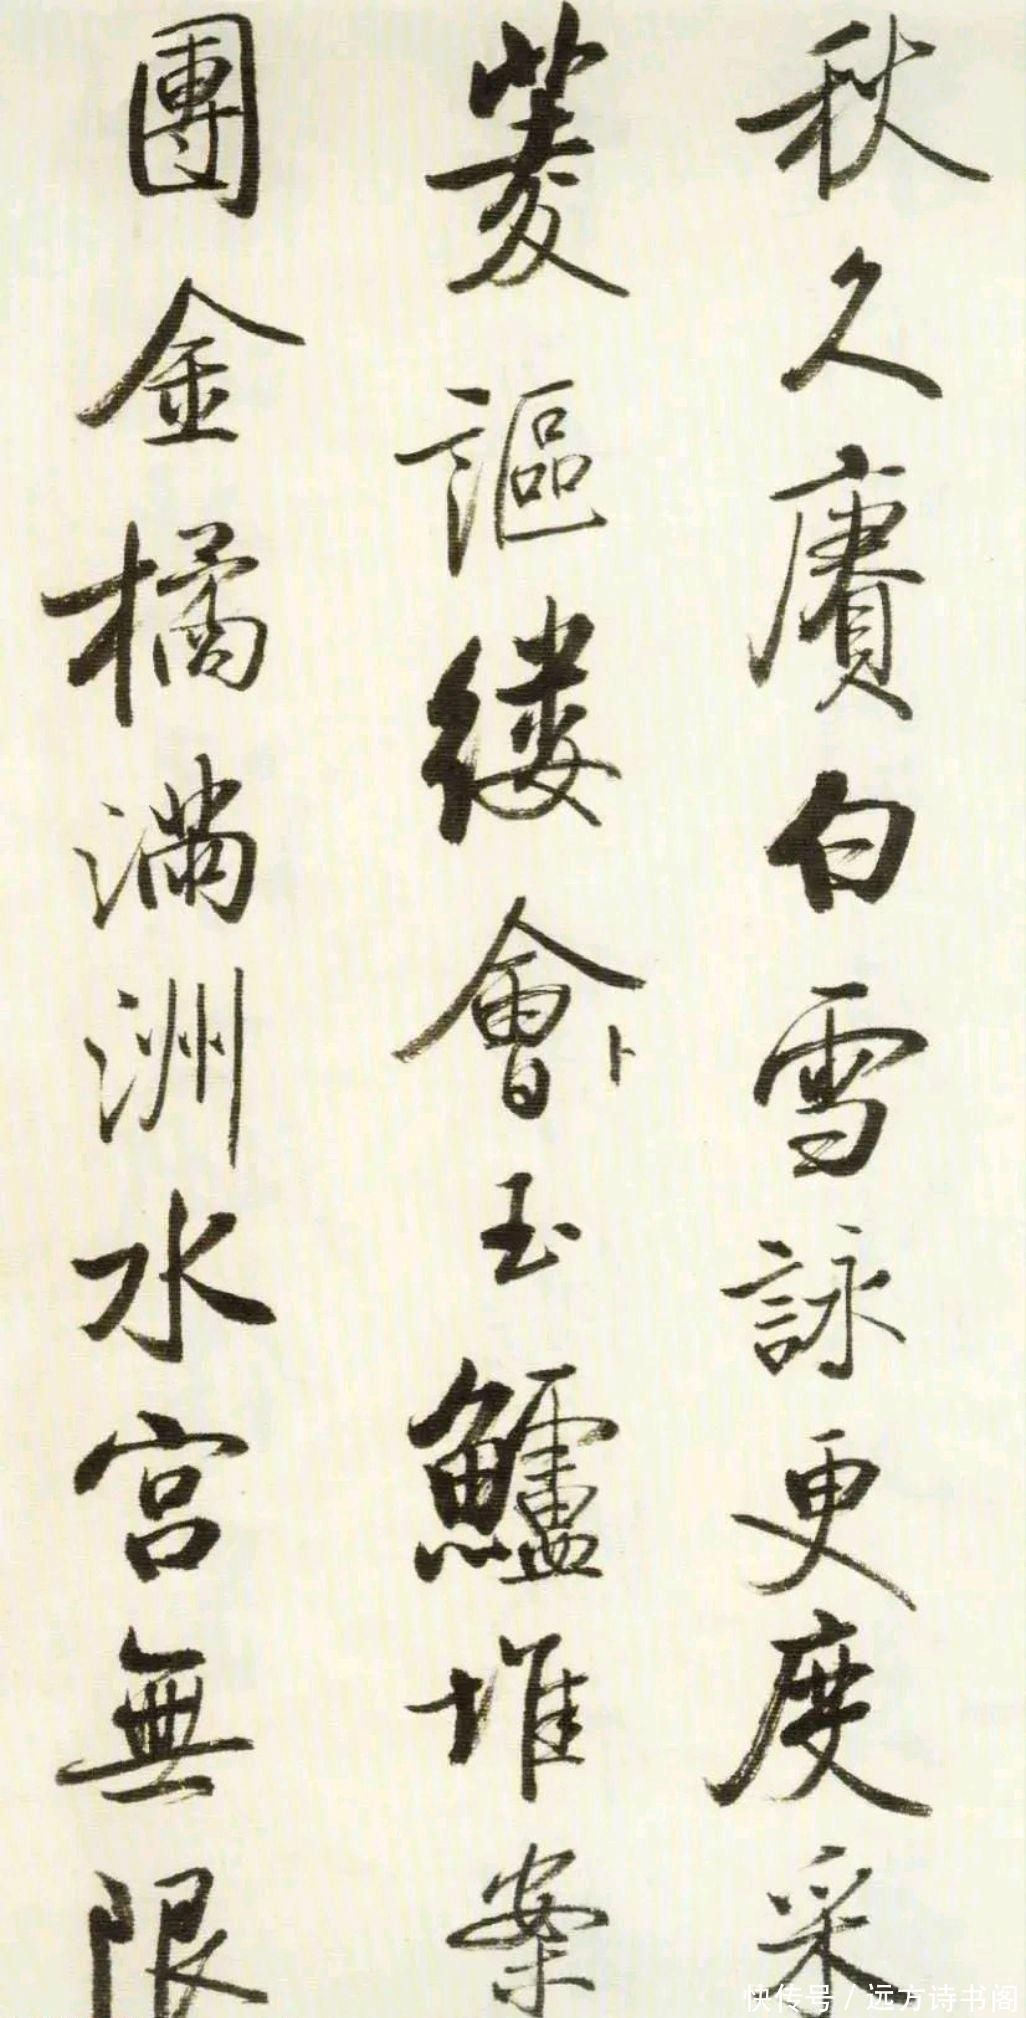 秋久賡白雪詠更度采
菱謳縷會卜玉鱸堆案
團金橘滿洲水宮無限
快传号/远方诗书阁